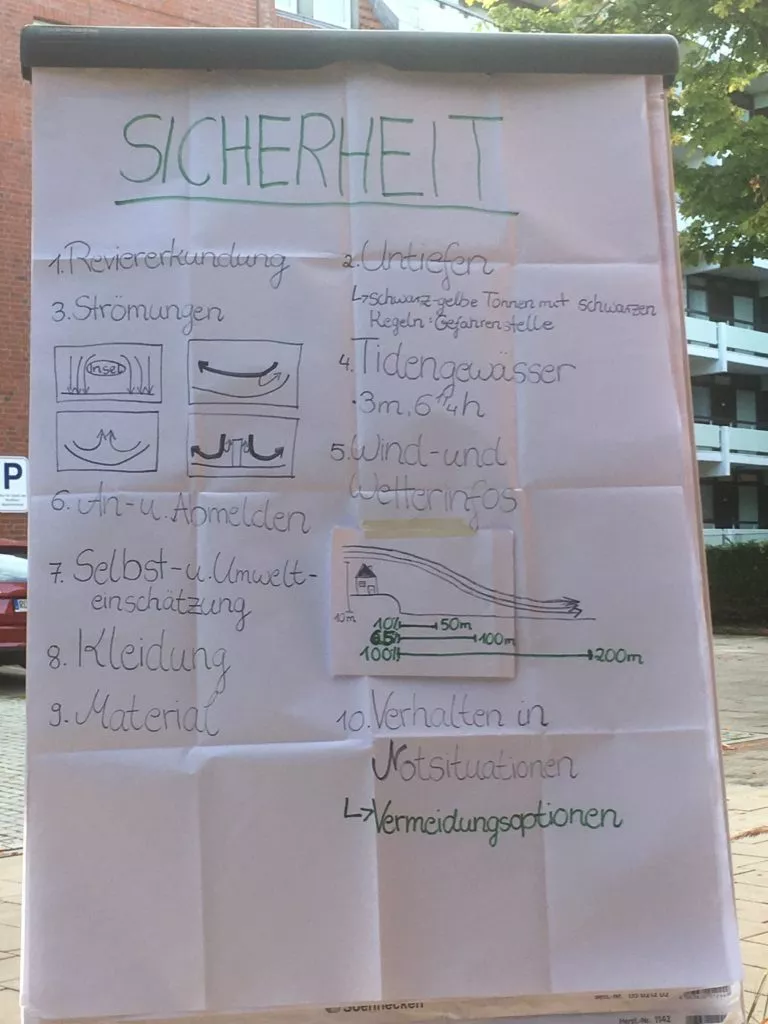 SICHERHEIT
1. Reviererkundung
2. Untiefen
↳ schwarz-gelbe Tonnen mit schwarzen
Kegeln = Gefahrenstelle
3. Strömungen
Insel
4. Tidengewässer
·3m, 6 1/4 h
5. Wind- und
Wetterinfos
6. An- u. Abmelden
7. Selbst- u. Umwelt-
einschätzung
10m
10% 50m
65% 100m
100% 200m
8. Kleidung
9. Material
10. Verhalten in
Notsituationen
↳ Vermeidungsoptionen
P
Soennecken
Herst.-Nr. 1142